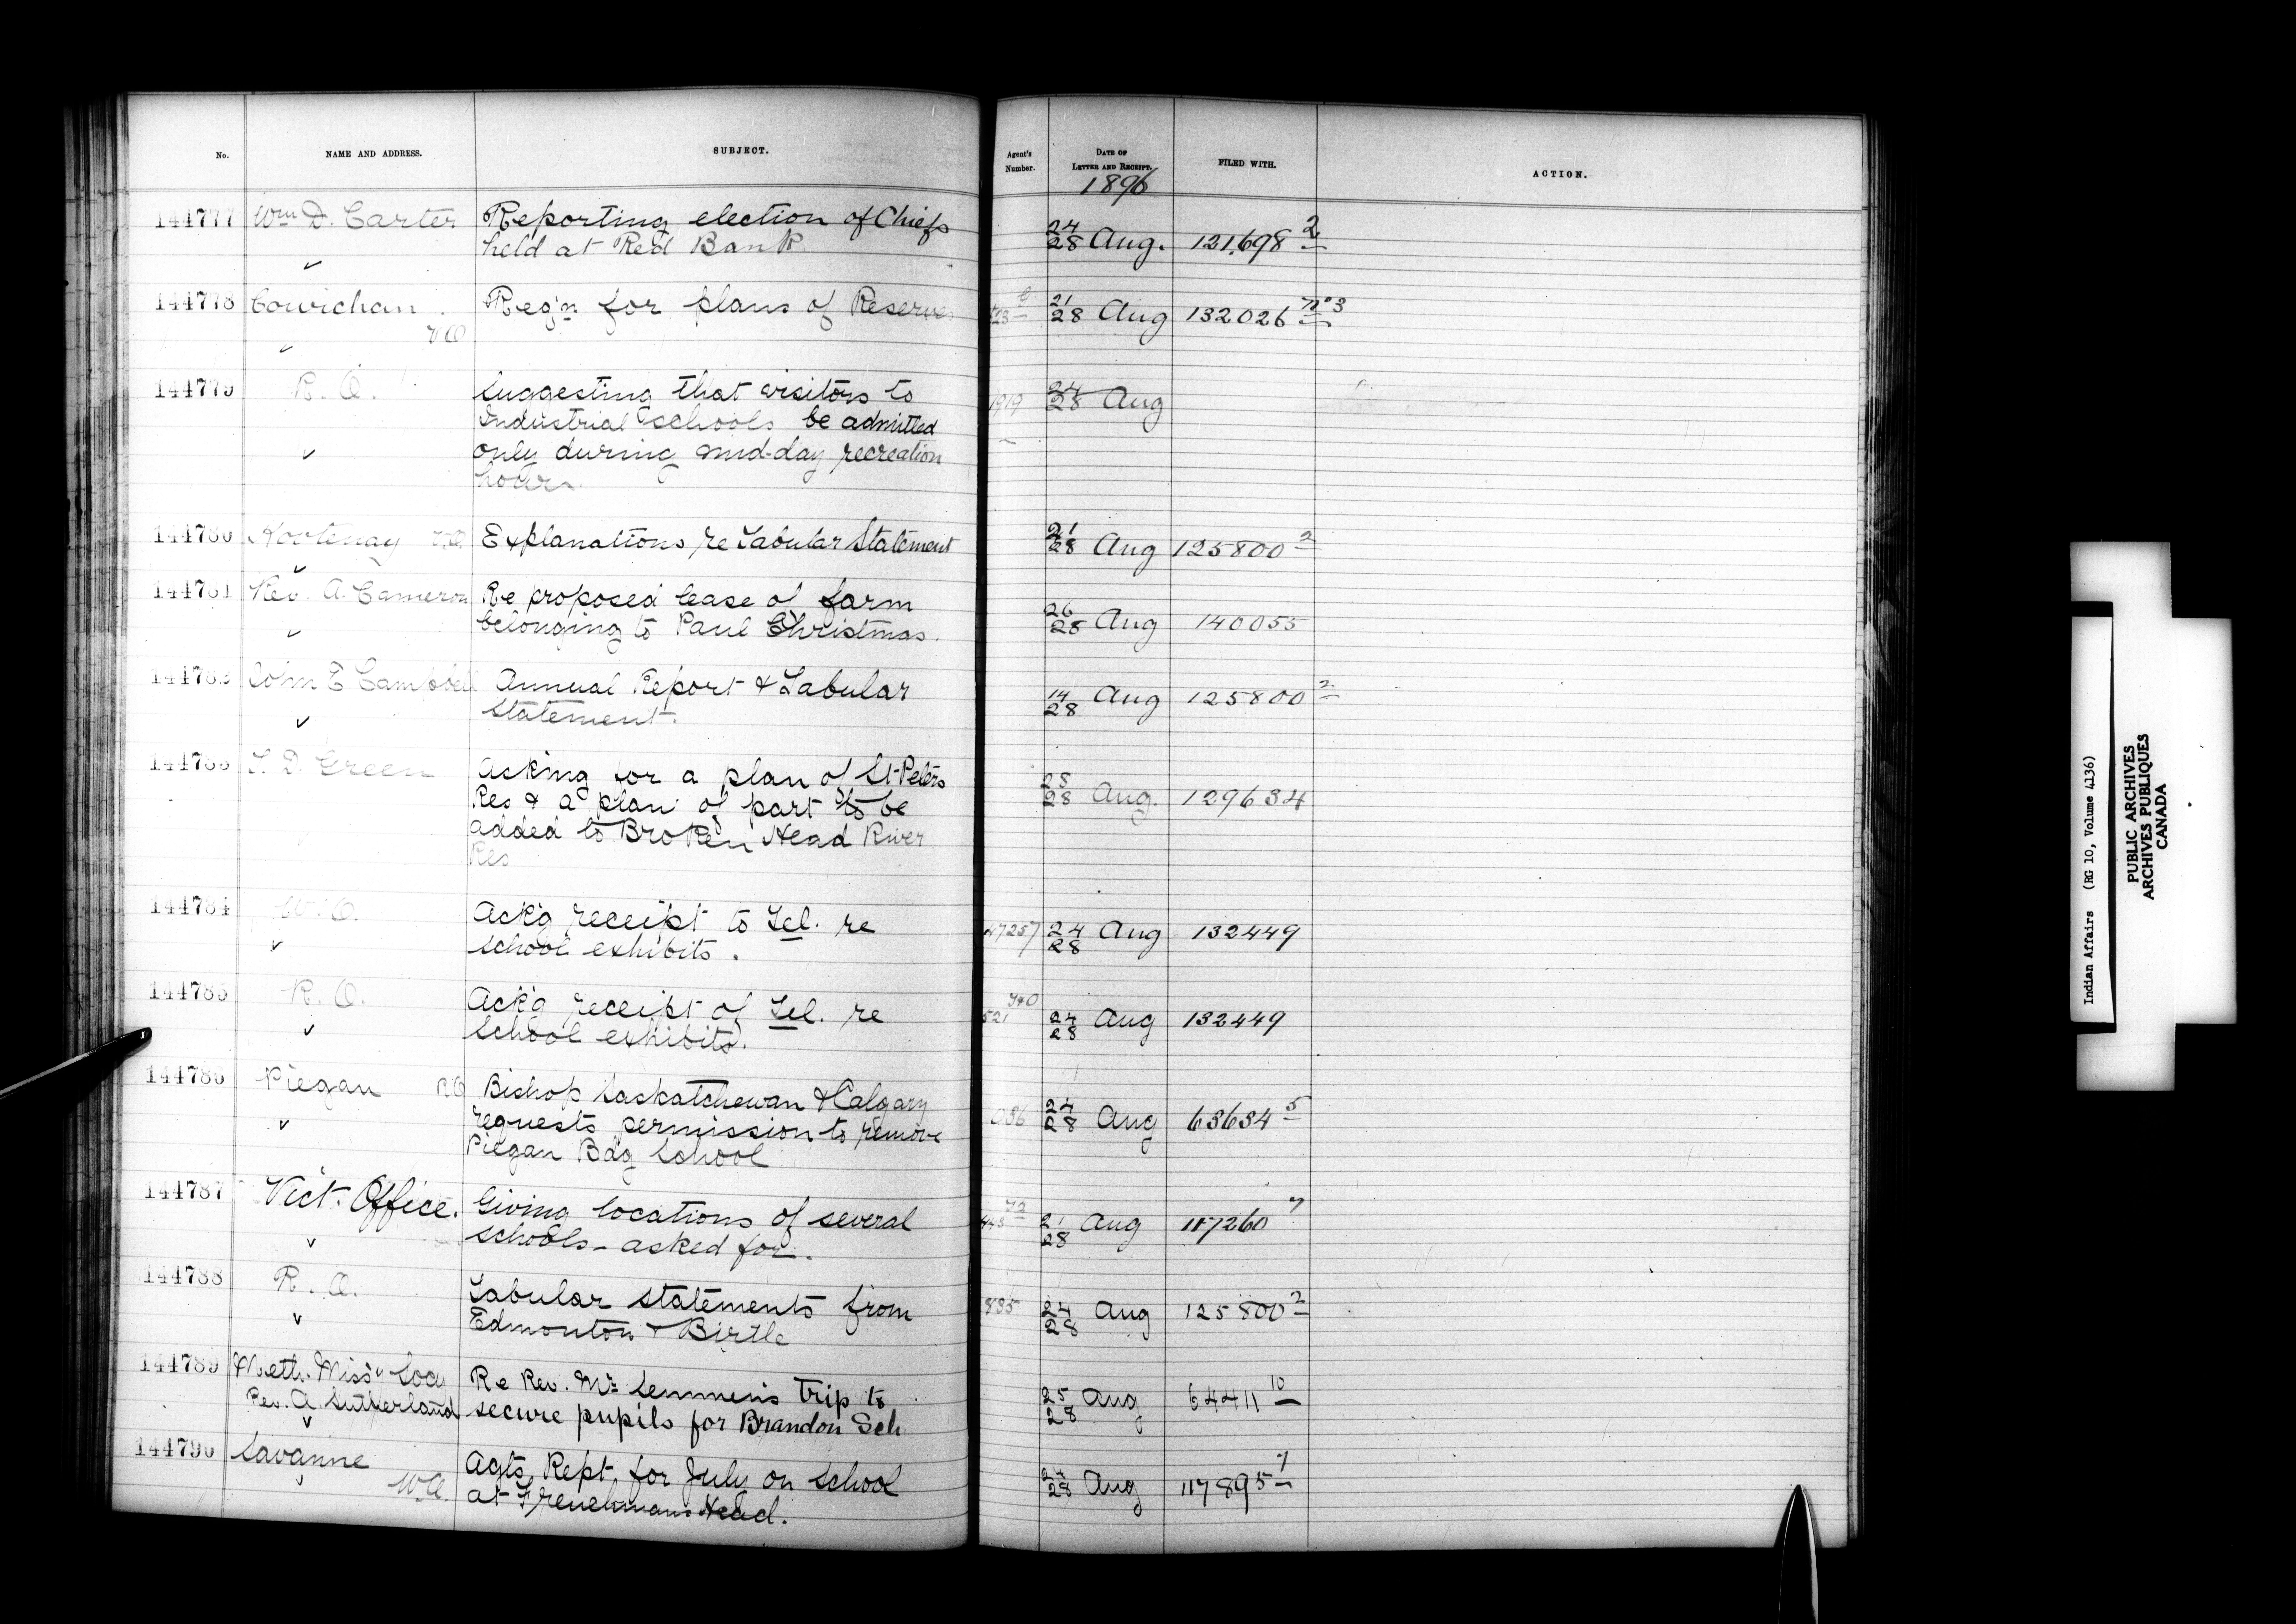 No. NAME AND ADDRESS. SUBJECT. Agent's Number. DATE OF LETTER AND RECEIPT. FILED WITH. ACTION.
1896
144777 Wm D. Carter Reporting election of Chiefs 24/28 Aug. 121,698 2
held at Red Bank
144778 Cowichan V.O Reg'n for plans of Reserve 21/28 Aug 132026 No 3
144779 R. O. Suggesting that visitors to 1919 24/28 Aug
Industrial schools be admitted
only during mid-day recreation
hours.
144780 Kootenay V.O. Explanations re Tabular Statement 21/28 Aug 125800 2
144781 Rev. A. Cameron Re proposed lease of farm 26/28 Aug 140055
belonging to Paul Christmas.
144782 Colm E Campbell Annual Report & Tabular 14/28 Aug 125800 2
Statement.
144783 T. D. Green Asking for a plan of St Peters 28 Aug. 129634
Res & a plan of part to be
added to Broken Head River
Res
144784 W. O. Ackg receipt to Tel. re 47257 24/28 Aug 132449
school exhibits.
144785 R. O. Ackg receipt of Tel. re 521 24/28 Aug 132449
school exhibits.
144786 Piegan R.O Bishop Saskatchewan & Calgary 24/28 Aug 63634 5
requests permission to remove
Piegan Bdg School
144787 Vict. Office. Giving locations of several 21/28 Aug 117260 7
schools - asked for.
144788 R. O. Tabular statements from 885 24/28 Aug 125800 2
Edmonton & Birtle
144789 Meth. Missy Socy Re Rev. Mr. Semmens trip to 25/28 Aug 64411 10
Rev. A. Sutherland secure pupils for Brandon Sch.
144790 Savanne Agts Rept. for July on School 24/28 Aug 117895 7
W.O. at Frenchmans Head.
Indian Affairs (RG 10, Volume 4136)
PUBLIC ARCHIVES
ARCHIVES PUBLIQUES
CANADA